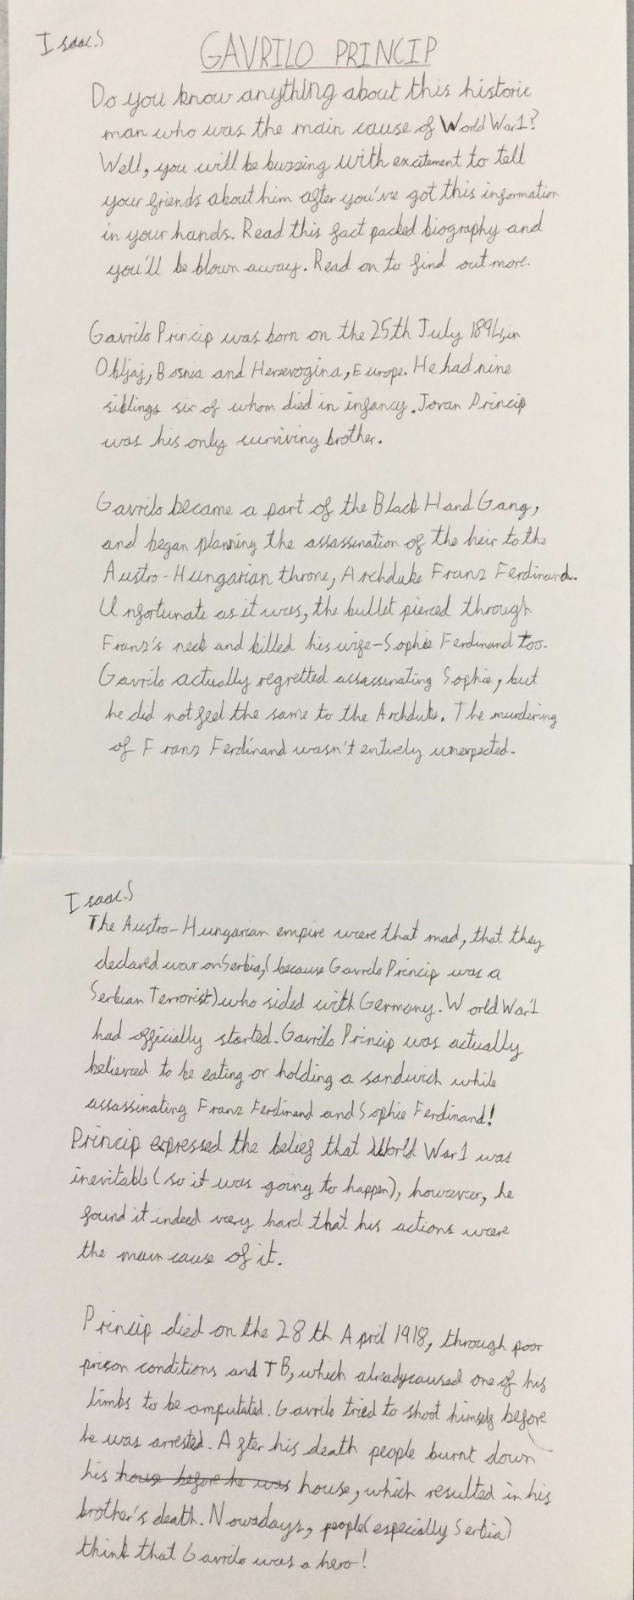 Isaac.S
GAVRILO PRINCIP
Do you know anything about this historic
man who was the main cause of World War1?
Well, you will be buzzing with excitement to tell
your friends about him after you've got this information
in your hands. Read this fact packed biography and
you'll be blown away. Read on to find out more.
Gavrilo Princip was born on the 25th July 1894, in
Obljaj, Bosnia and Herzevogina, Europe. He had nine
siblings six of whom died in infancy. Jovan Princip
was his only surviving brother.
Gavrilo became a part of the Black Hand Gang,
and began planning the assassination of the heir to the
Austro-Hungarian throne, Archduke Franz Ferdinand.
Unfortunate as it was, the bullet pierced through
Franz's neck and killed his wife-Sophie Ferdinand too.
Gavrilo actually regretted assassinating Sophie, but
he did not feel the same to the Archduke. The murdering
of Franz Ferdinand wasn't entirely unexpected.
Isaac.S
The Austro-Hungarian empire were that mad, that they
declared war on Serbia, (because Gavrilo Princip was a
Serbian Terrorist) who sided with Germany. World War1
had officially started. Gavrilo Princip was actually
believed to be eating or holding a sandwich while
assassinating Franz Ferdinand and Sophie Ferdinand!
Princip expressed the belief that World War1 was
inevitable (so it was going to happen), however, he
found it indeed very hard that his actions were
the main cause of it.
Princip died on the 28th April 1918, through poor
prison conditions and TB, which already caused one of his
limbs to be amputated. Gavrilo tried to shoot himself before
he was arrested. After his death people burnt down
his house before he was house, which resulted in his
brother's death. Nowadays, people (especially Serbia)
think that Gavrilo was a hero!